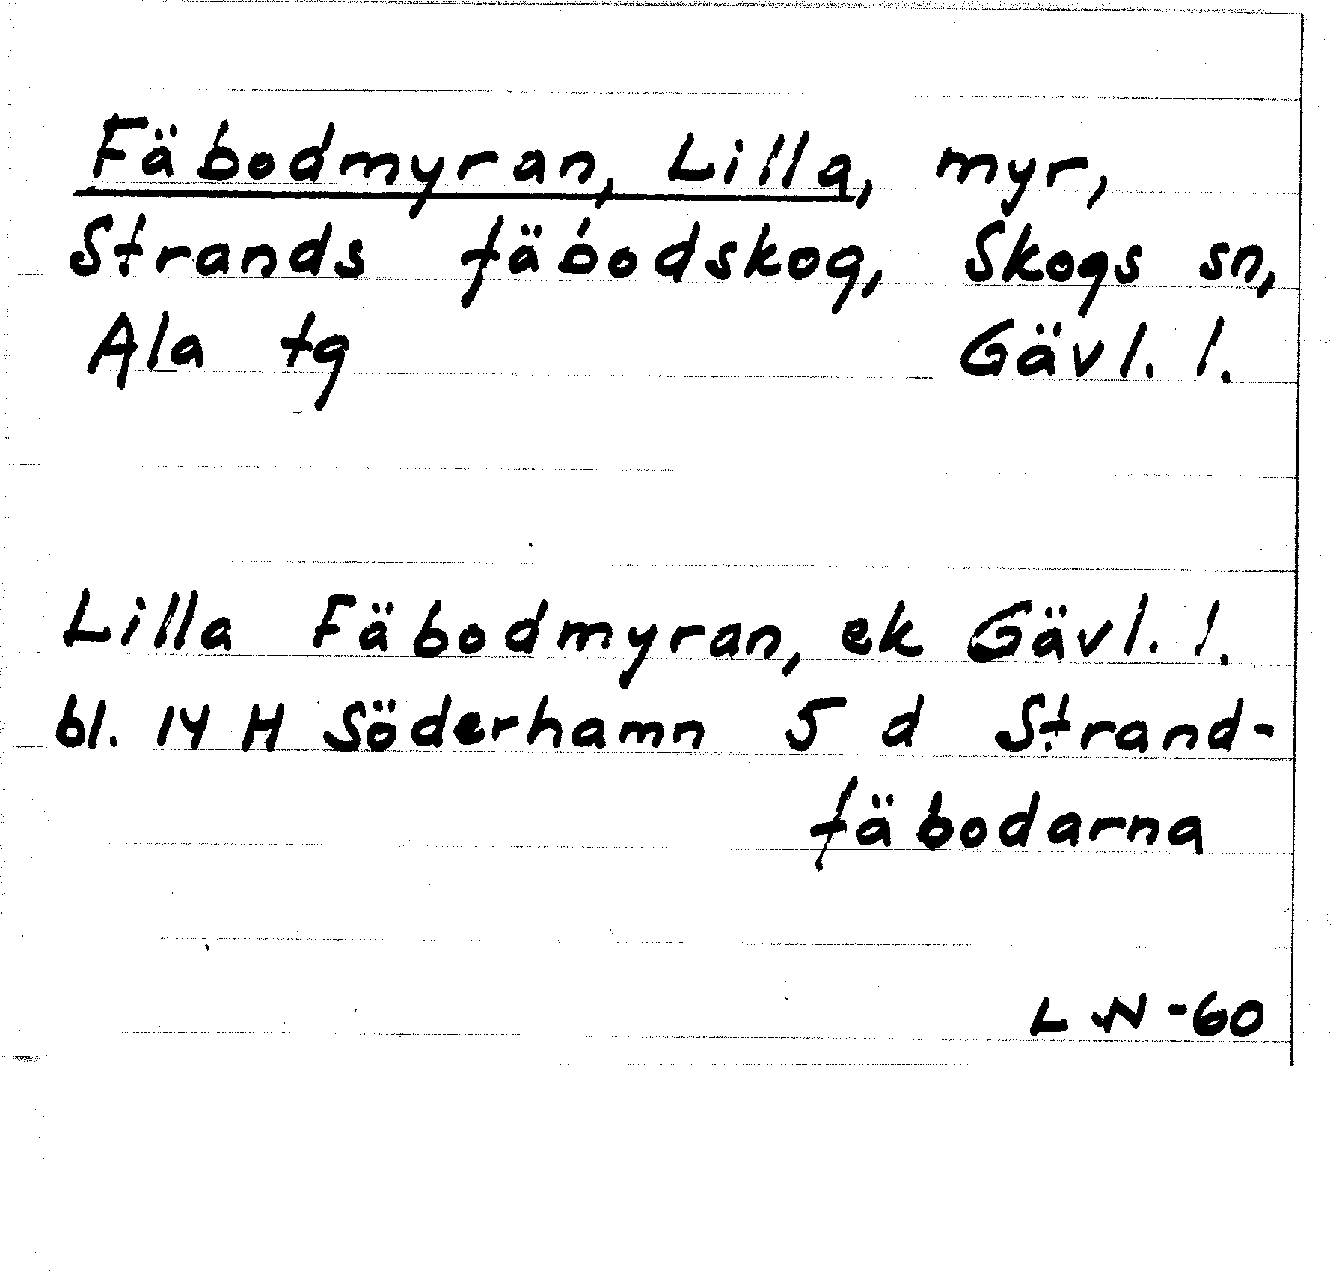 Fäbodmyran, Lilla, myr,
Strands fäbodskog, Skogs sn,
Ala tg Gävl. l.
Lilla Fäbodmyran, ek Gävl. l.
bl. 14 H Söderhamn 5 d Strand-
fäbodarna
L N -60